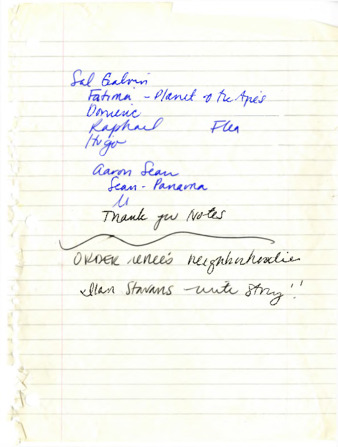 Sal Galvin
Fatima - Planet of the Apes
Dominic
Raphael Flea
Hugo
Aaron Sean
Sean - Panama
Thank you Notes
ORDER renee's
Ilan Stavans - write story!!